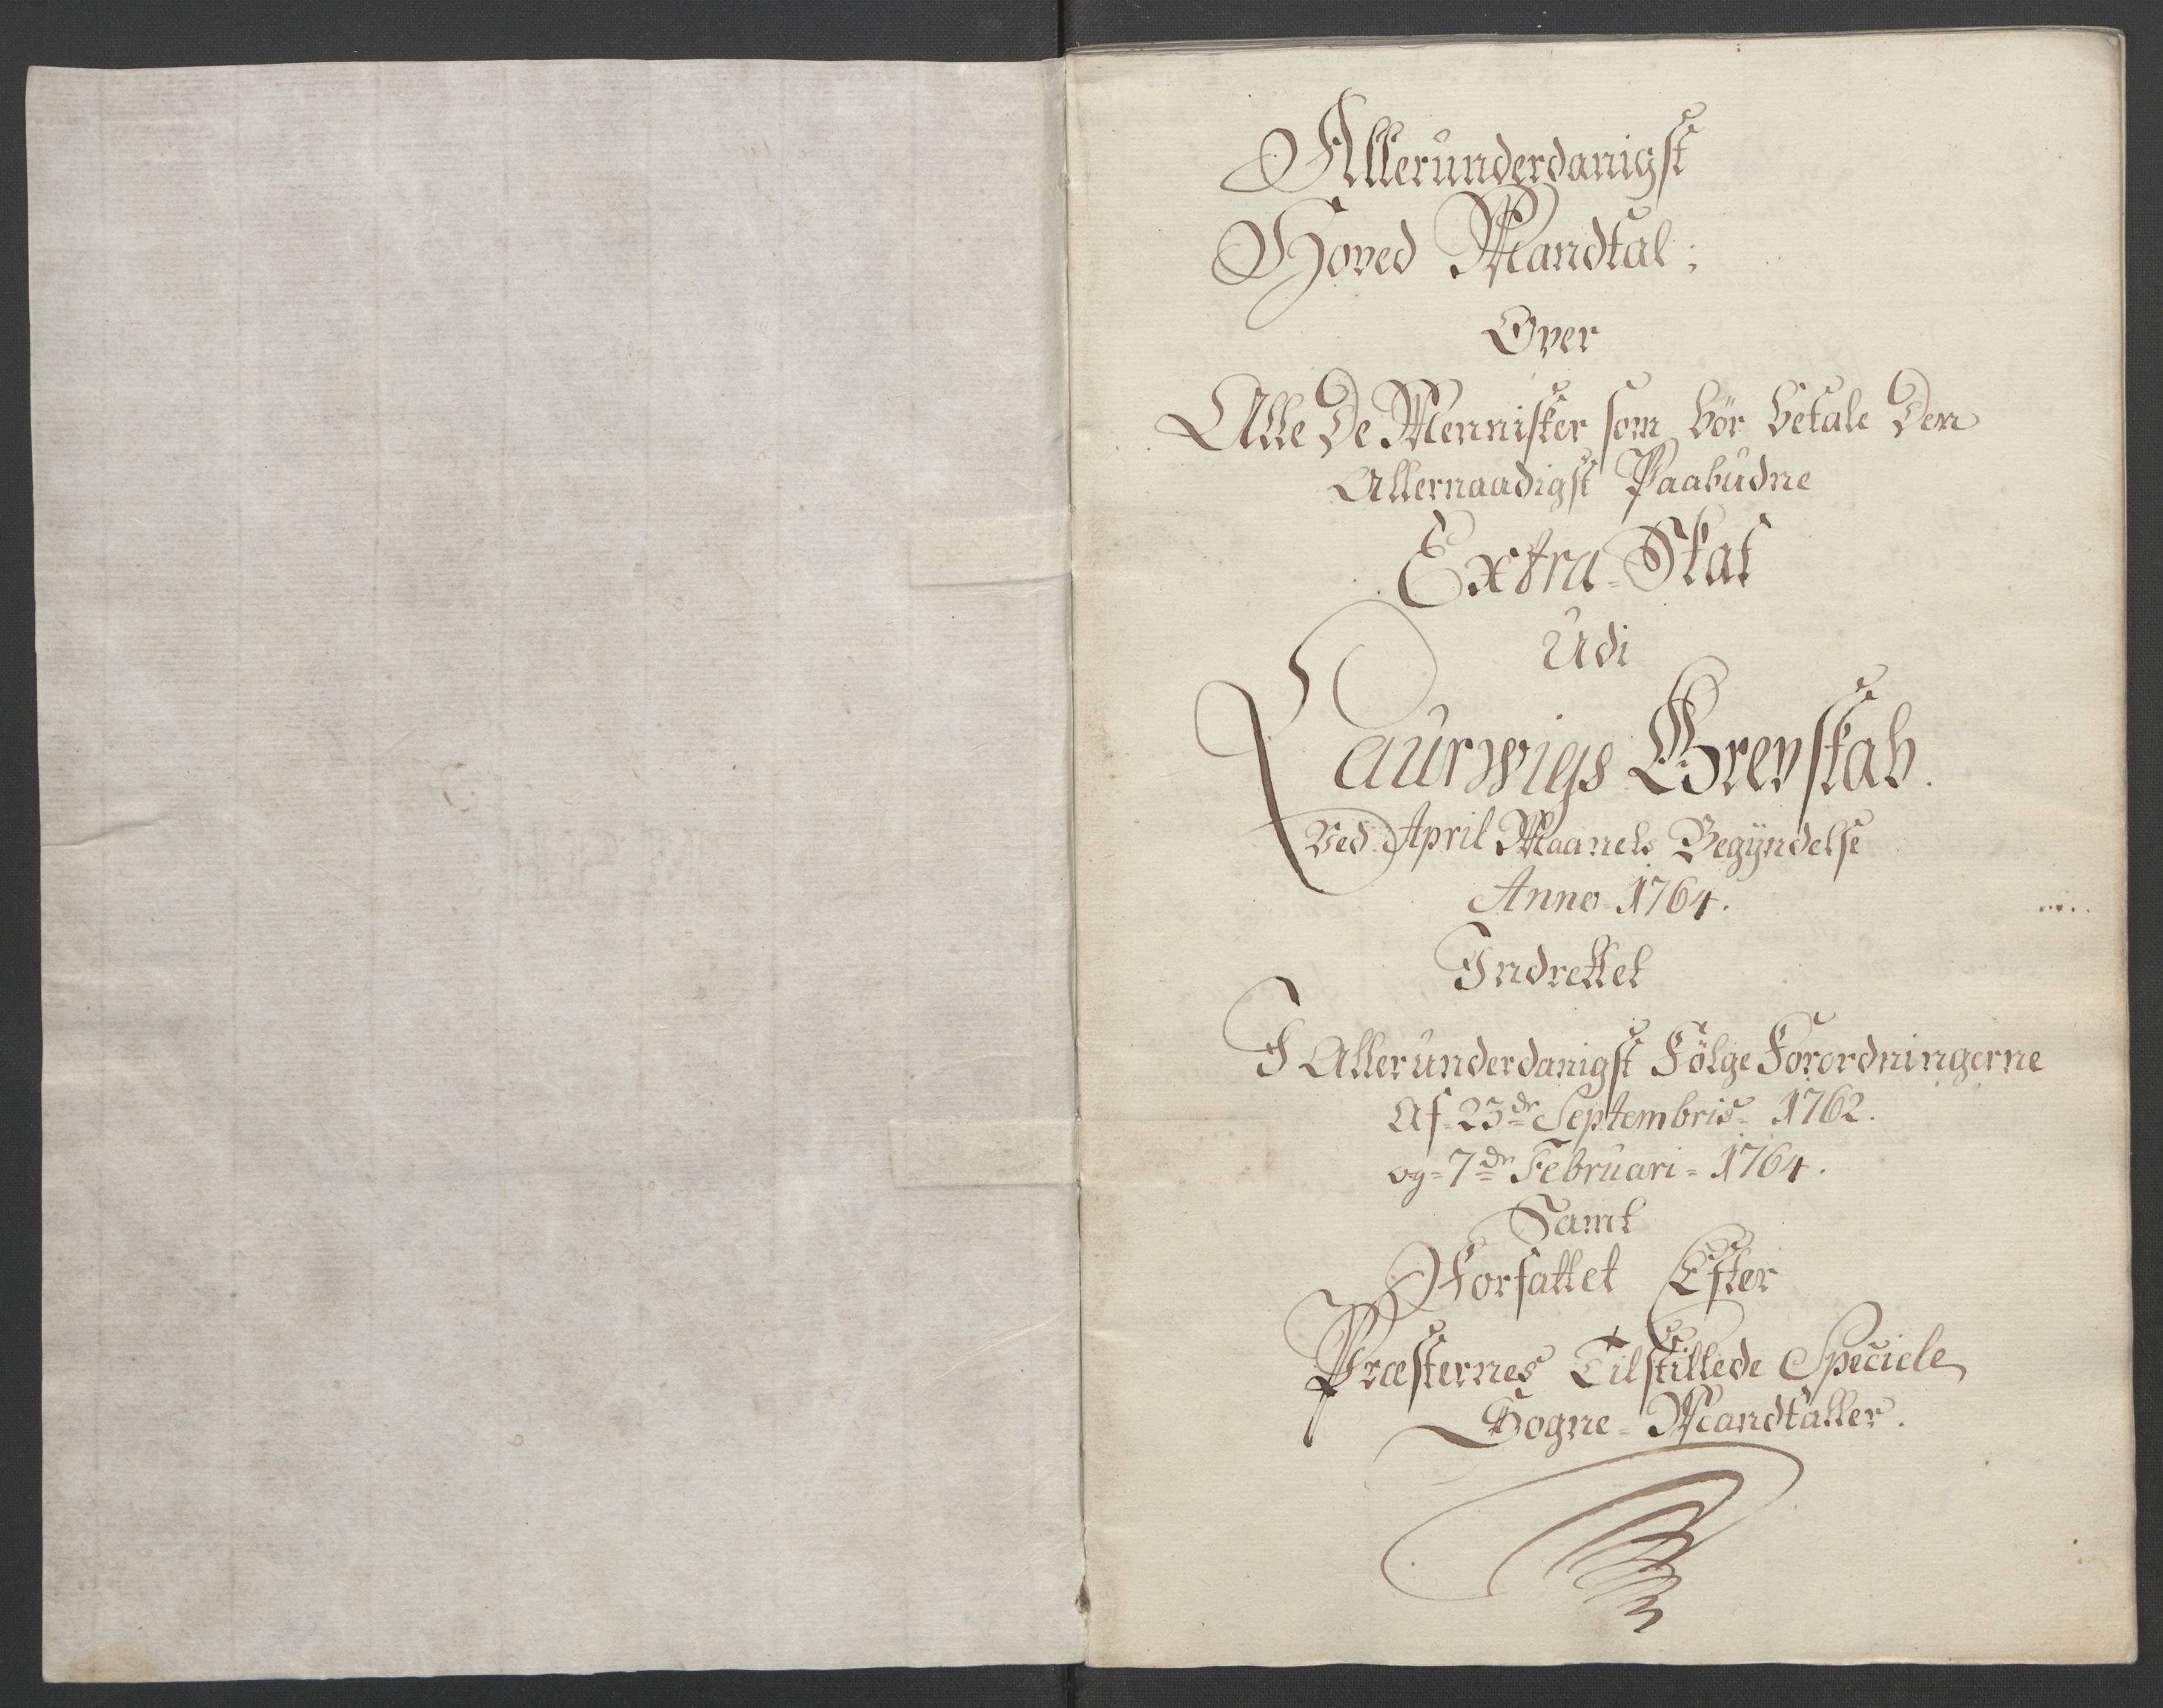 Allerunderdanigst
Hoved Mandtal;
Over
Alle De Mennisker som bör betale Den
Allernaadigst Paabudne
Extra-Skat
Udi
Laurwigs Grevskab.
Ved April Maanets Begÿndelse
Anno 1764.
Indrettet
I Allerunderdanigst Fölge Forordningerne
Af 23de Septembris 1762.
og 7de Februari 1764.
Samt
Forfattet Efter
Præsternes Tilstillede Speciele
Sogne-Mandtaller.